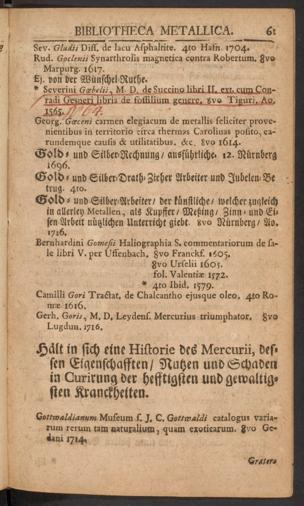 BIBLIOTHECA METALLICA. 61
Sev. Gludis Diss. de lacu Asphaltite. 4to Hafn. 1704.
Rud. Goclenii Synarthrosis magnetica contra Robertum, 8vo
Marpurg. 1617.
Ej. von der Wünschel-Ruthe.
* Severini Gœbelii, M. D. de Succino libri II. ext. cum Con-
radi Gesneri libris de fossilium genere, 8vo Tiguri, Ao.
1565.
Georg. Gæceni carmen elegiacum de metallis feliciter prove-
nientibus in territorio circa thermas Carolinas posito, ea-
rundemque causis & utilitatibus. &c. 8vo 1614.
Gold- und Silber-Rechnung/ ausführliche. 12. Nürnberg
1696.
Gold- und Silber-Drath-Zieher Arbeiter und Jubelen-Be
trug. 4to.
Gold- und Silber-Arbeiter/ der künstliche/ welcher zugleich
in allerley Metallen, als Kupffer/ Meßing/ Zinn- und Ei-
sen-Arbeit nützlichen Unterricht giebt. 8vo Nürnberg/ Ao.
1716.
Bernhardini Gomesii Haliographia S. commentariorum de sa-
le libri V. per Uffenbach. 8vo Franckf. 1605.
8vo Urselii 1605.
fol. Valentiæ 1572.
* 4to Ibid. 1579.
Camilli Gori Tractat. de Chalcantho ejusque oleo, 4to Ro-
mæ 1616.
Gerh. Goris, M. D. Leydens. Mercurius triumphator. 8vo
Lugdun. 1716.
Hält in sich eine Historie des Mercurii, des-
sen Eigenschafften/ Nutzen und Schaden
in Curirung der hefftigsten und gewaltig-
sten Kranckheiten.
Gottwaldianum Museum s. J. C. Gottwaldi catalogus varia-
rum rerum tam naturalium, quam exoticarum. 8vo Ge-
dani 1714.
Gratera